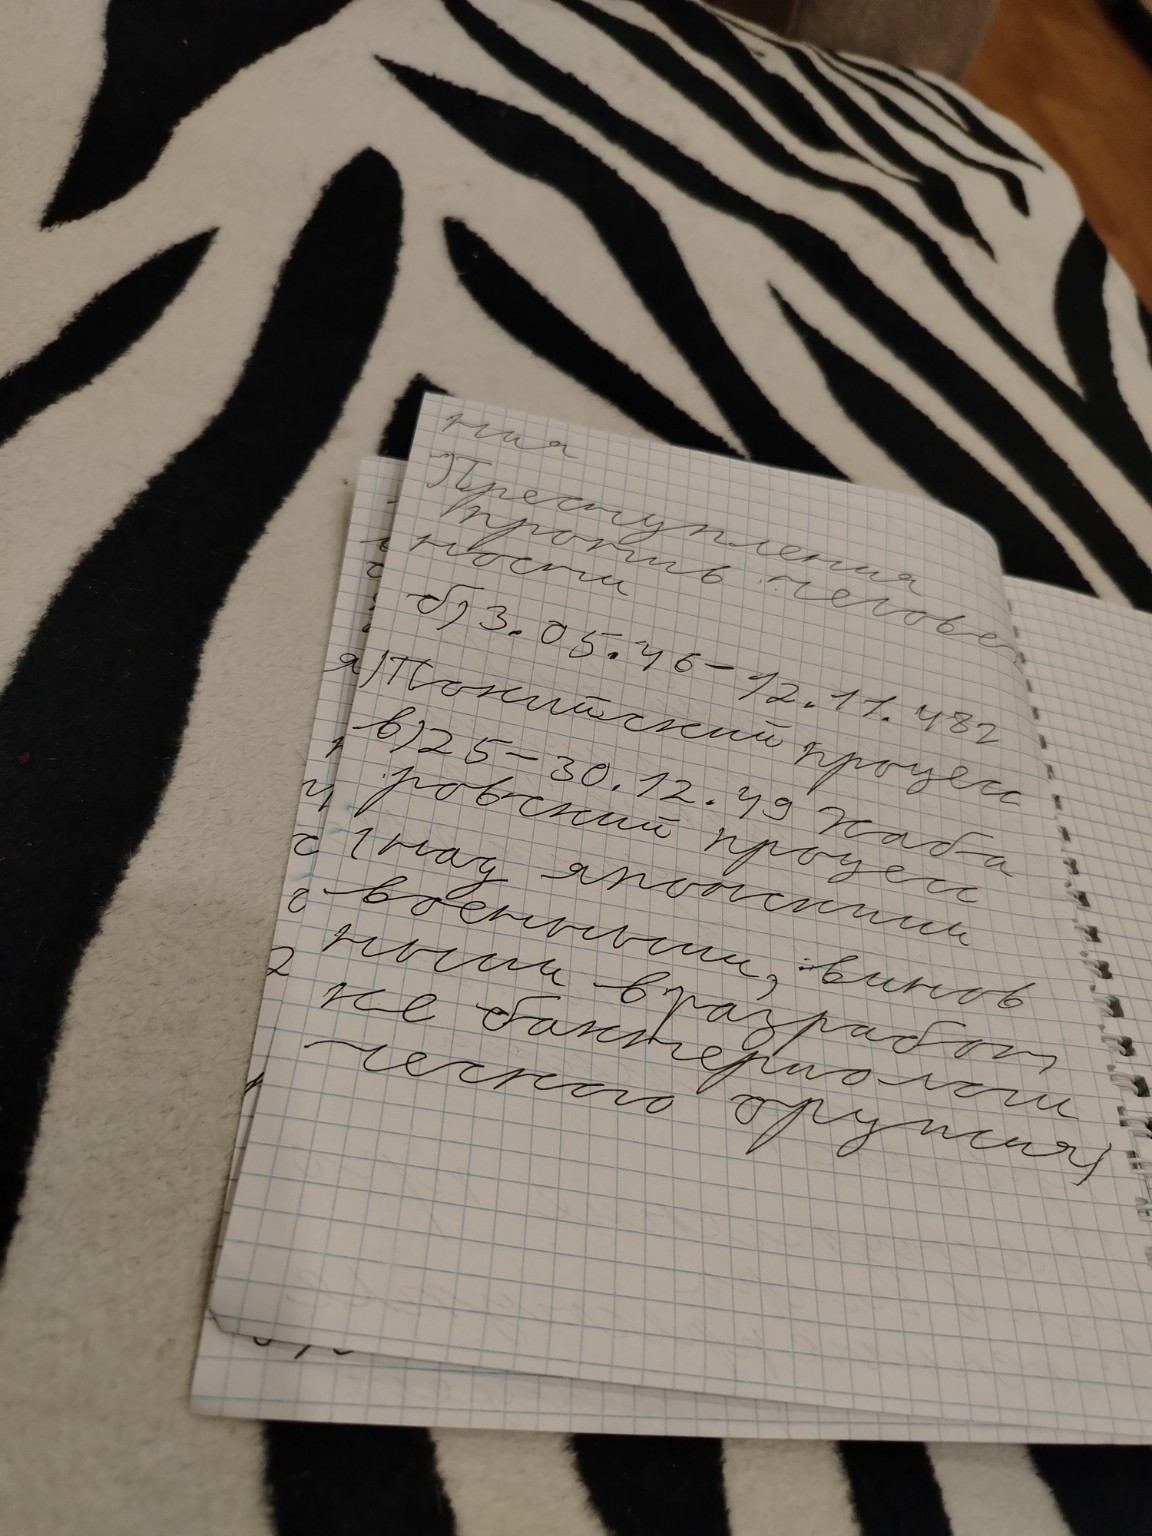 ния
Преступления
против человеч
ности
б) 3.05.46-12.11.48г
Токийский процесс
в) 25-30.12.49 Хаба
ровский процесс
(над японскими
военными, винов
ными в разработ
ке бактериологи
ческого оружия)